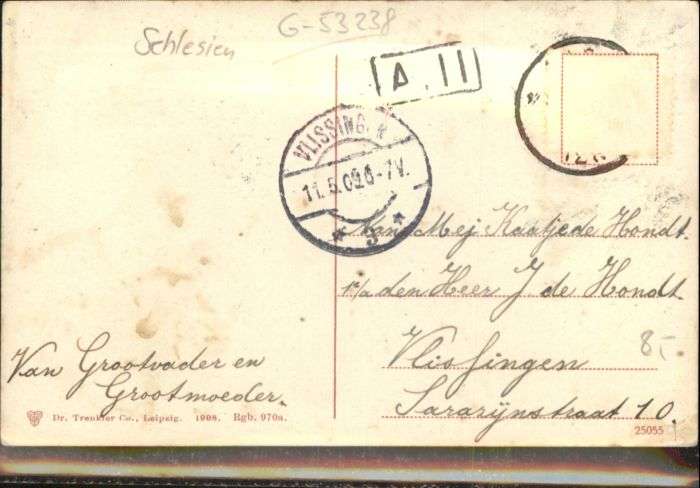 Schlesien
G-53238
A.II
VLISSINGEN
11.5.09.6-7V.
* 3 *
Aan Mej Kaatje de Hondt.
p/a den Heer J. de Hondt.
Vlissingen
8,-
Van Grootvader en
Grootmoeder.
Dr. Trenkler Co., Leipzig. 1908. Rgb. 970a.
25055